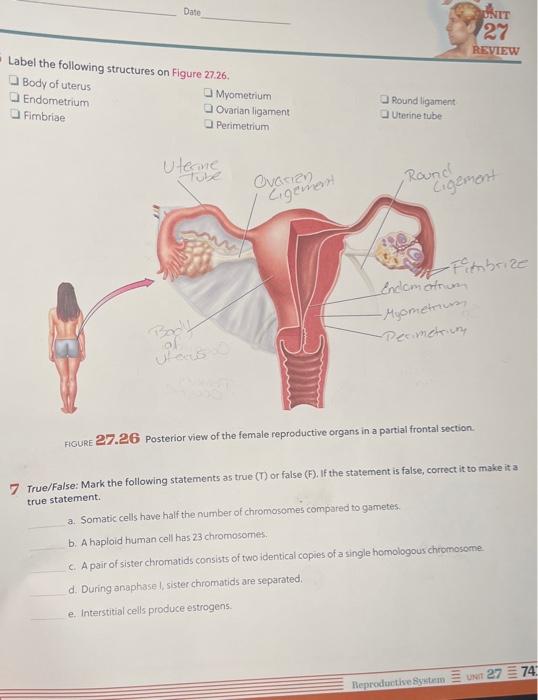 Date
UNIT
27
REVIEW
Label the following structures on Figure 27.26.
❑ Body of uterus
❑ Endometrium
❑ Fimbriae
❑ Myometrium
❑ Ovarian ligament
❑ Perimetrium
❑ Round ligament
❑ Uterine tube
Uterine
Tube
Ovarien
Ligement
Round
Ligement
Fimbrize
Endometrium
Myometrium
Perimetrium
Body
of
uterus
FIGURE 27.26 Posterior view of the female reproductive organs in a partial frontal section.
7 True/False: Mark the following statements as true (T) or false (F). If the statement is false, correct it to make it a
true statement.
a. Somatic cells have half the number of chromosomes compared to gametes.
b. A haploid human cell has 23 chromosomes.
c. A pair of sister chromatids consists of two identical copies of a single homologous chromosome.
d. During anaphase I, sister chromatids are separated.
e. Interstitial cells produce estrogens.
Reproductive System UNIT 27 74